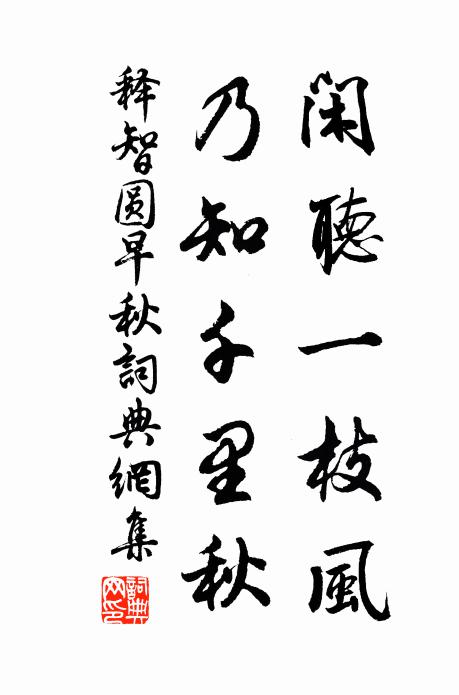 闲聽一枝風
乃知千里秋
释智圆早秋詞典網集
詞典